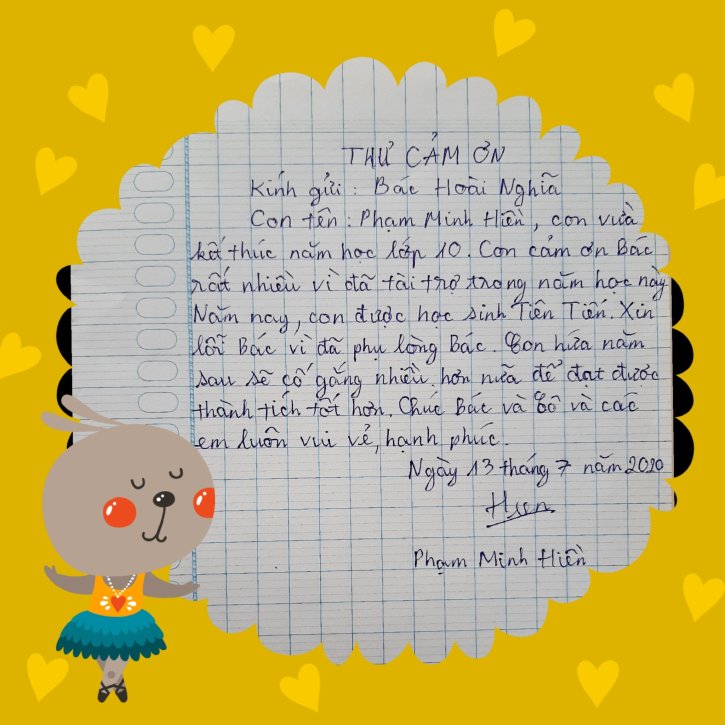 THƯ CẢM ƠN
Kính gửi : Bác Hoài Nghĩa
Con tên : Phạm Minh Hiền, con vừa
kết thúc năm học lớp 10. Con cảm ơn Bác
rất nhiều vì đã tài trợ trong năm học này
Năm nay, con được học sinh Tiên Tiến. Xin
lỗi Bác vì đã phụ lòng Bác. Con hứa năm
sau sẽ cố gắng nhiều hơn nữa để đạt được
thành tích tốt hơn. Chúc Bác và Cô và các
em luôn vui vẻ, hạnh phúc.
Ngày 13 tháng 7 năm 2020
Hien
Phạm Minh Hiền